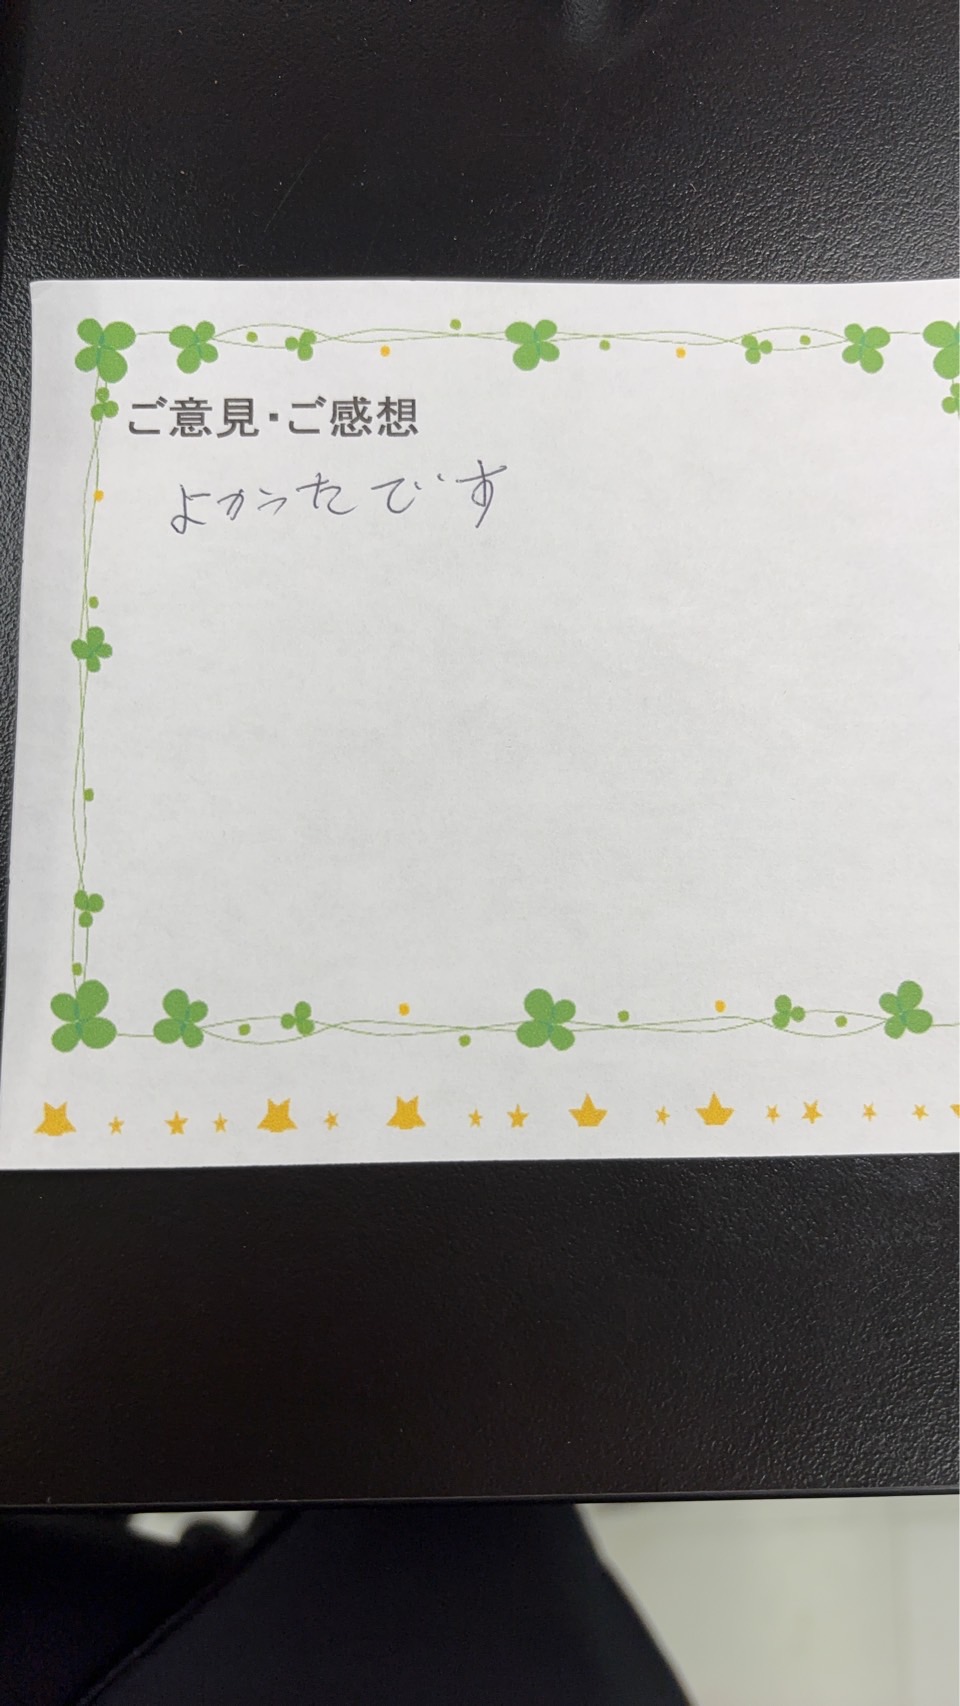 ご意見・ご感想
よかったです